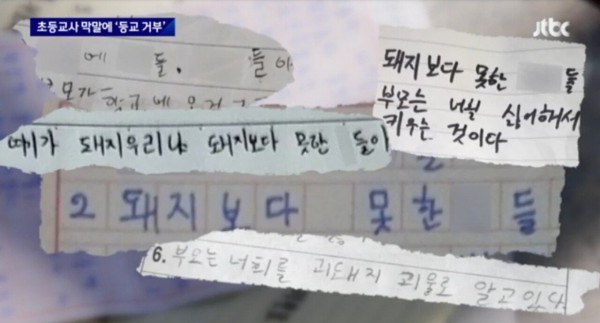 초등교사 막말에 '등교 거부'
jtbc
에 들. 들이
모가 학교에
돼지보다 못한 들
부모는 너희 싫어해서
키우는 것이다
여기가 돼지우리냐 돼지보다 못한 들이
2 돼지보다 못한 들
6. 부모는 너희를 괴물로 알고있다